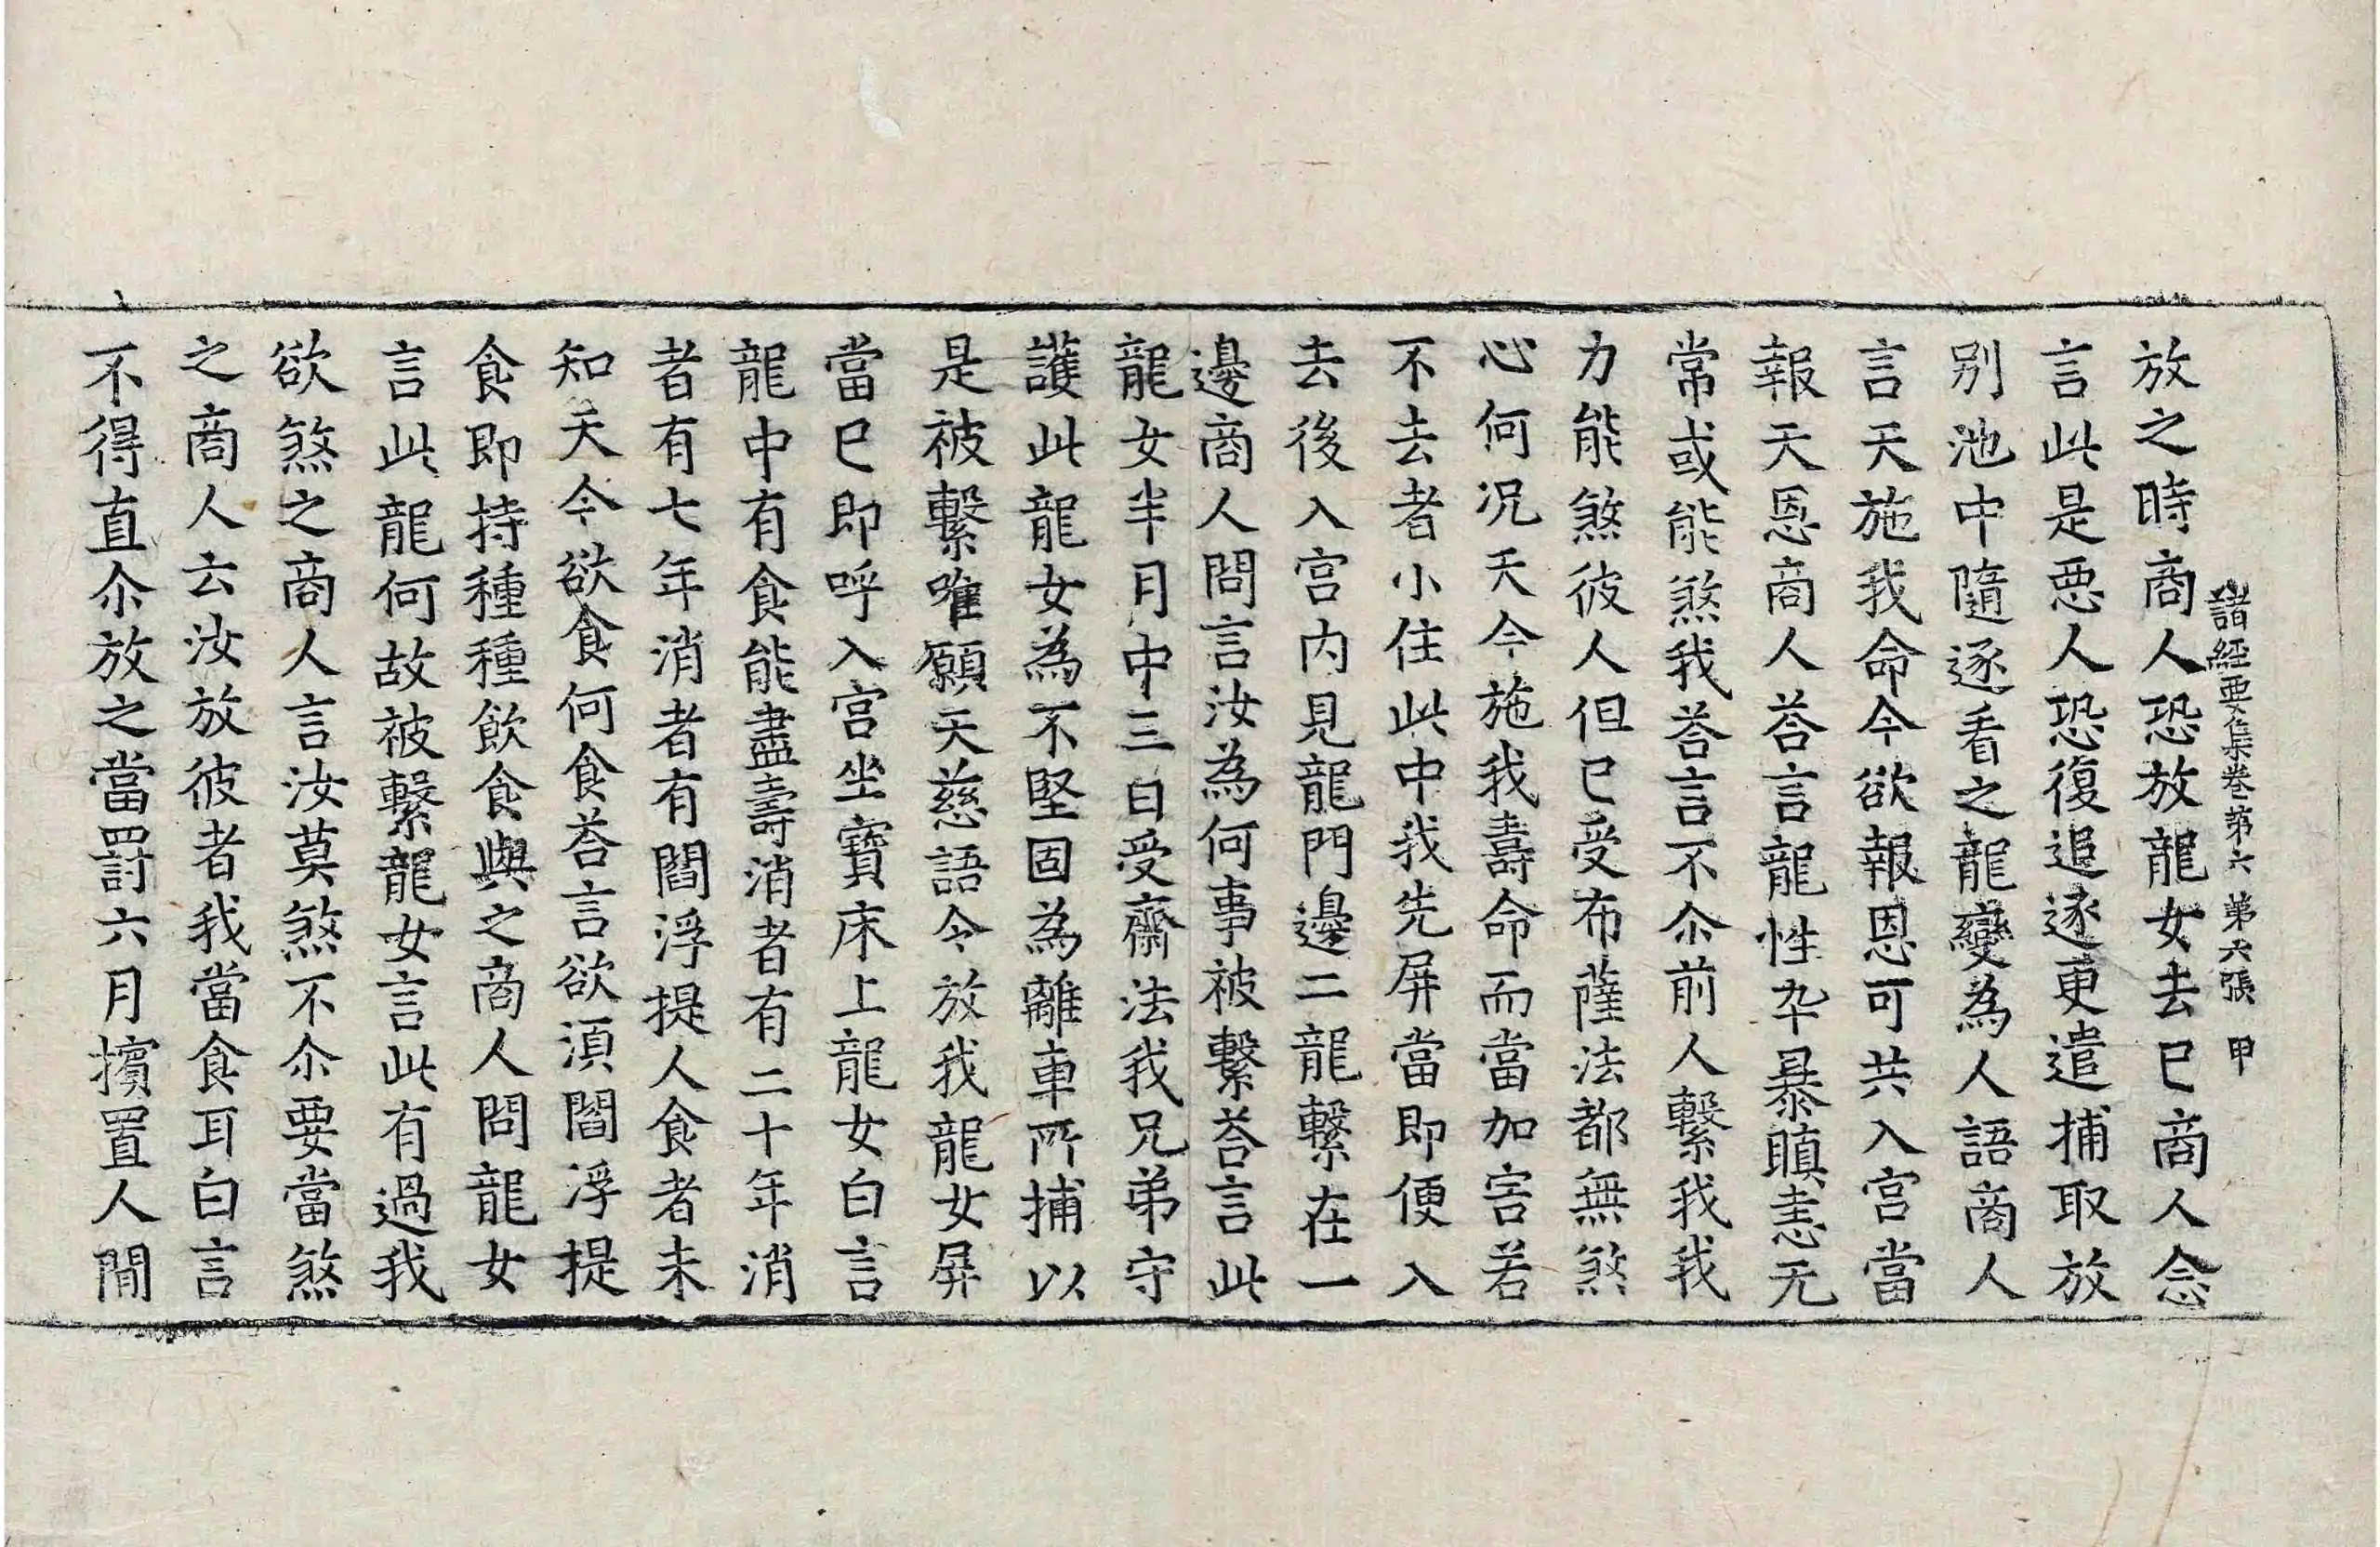 諸經要集卷第六 第六張 甲
放之時商人恐放龍女去已商人念
言此是惡人恐復追逐更遣捕取放
别池中隨逐看之龍變為人語商人
言天施我命今欲報恩可共入宫當
報天恩商人荅言龍性卒暴瞋恚无
常或能煞我荅言不尒前人繫我我
力能煞彼人但已受布薩法都無煞
心何况天今施我壽命而當加害若
不去者小住此中我先屏當即便入
去後入宫内見龍門邊二龍繫在一
邊商人問言汝為何事被繫荅言此
龍女半月中三日受齋法我兄弟守
護此龍女為不堅固為離車所捕以
是被繫唯願天慈語令放我龍女屏
當已即呼入宫坐寶床上龍女白言
龍中有食能盡壽消者有二十年消
者有七年消者有閻浮提人食者未
知天今欲食何食荅言欲湏閻浮提
食即持種種飲食與之商人問龍女
言此龍何故被繫龍女言此有過我
欲煞之商人言汝莫煞不尒要當煞
之商人云汝放彼者我當食耳白言
不得直尒放之當罰六月擯置人間